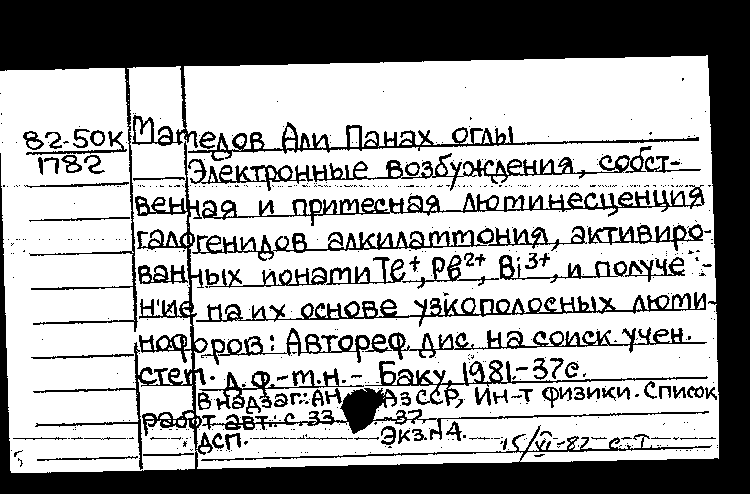 82-50К Матедов Али Панах оглы
1782 Электронные возбуждения, собст-
венная и притесная лютинесценция
галогенидов алкилаттония, активиро-
ванных ионати Te⁺, Pb²⁺, Bi³⁺, и получе-
ние на их основе узкополосных люти-
нофоров: Автореф. дис. на соиск. учен.
степ. д. ф.-т.н. - Баку, 1981.-37с.
В надзаг.: АН АзССР, Ин-т физики. Список
работ авт.: с. 33-37.
ДСП. Экз.№4. 15/VI-82 с.т.
5